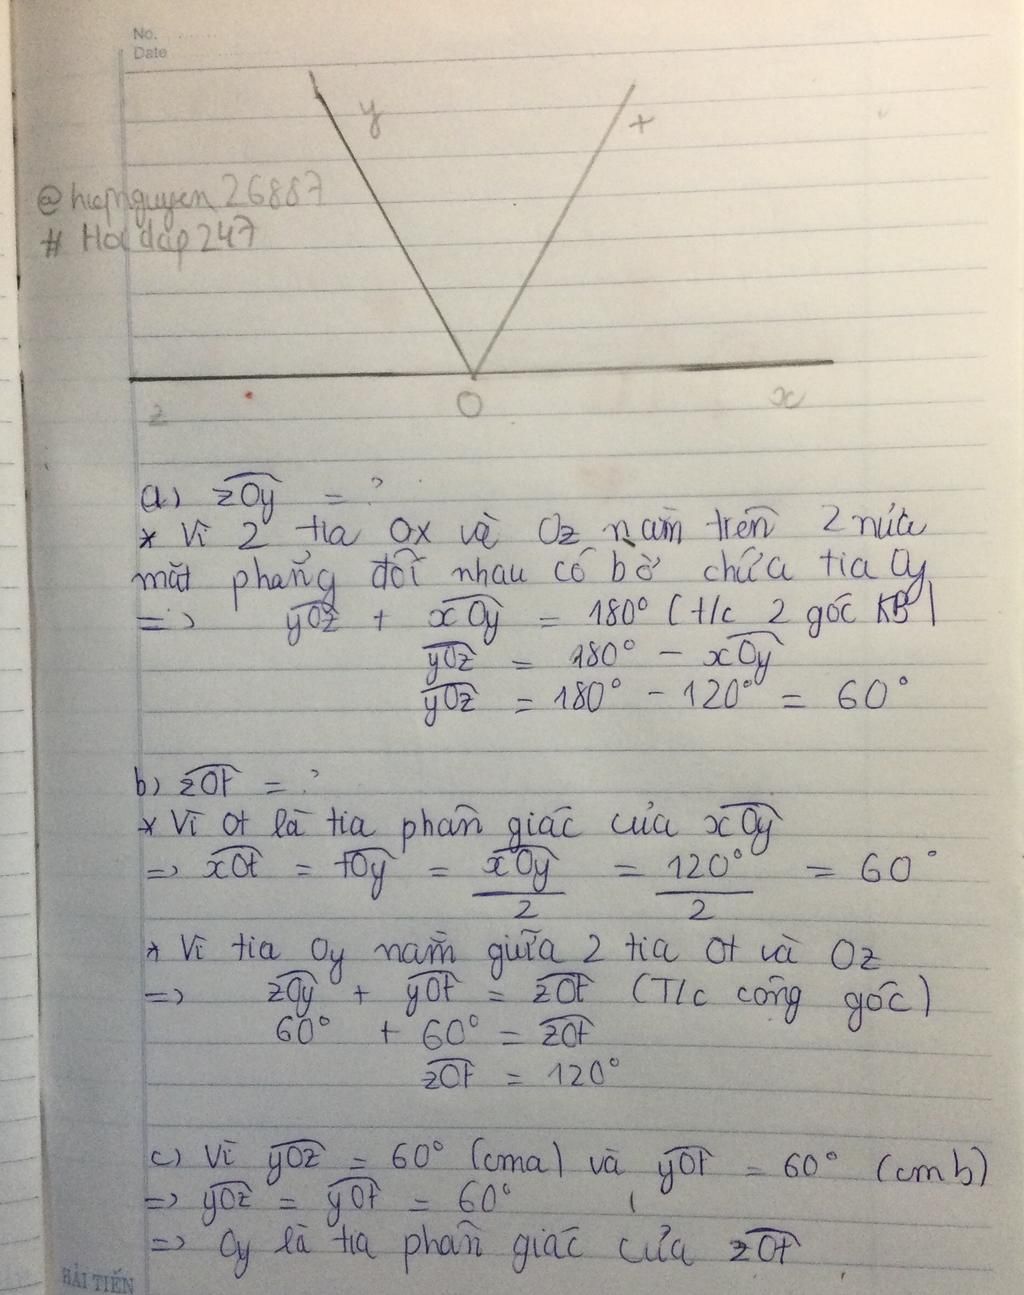 No.
Date
y
t
@hiepnguyen26887
# Hoidap247
z
O
x
a) zOy = ?
* Vì 2 tia Ox và Oz nằm trên 2 nửa
mặt phẳng đối nhau có bờ chứa tia Oy
=> yOz + xOy = 180° (t/c 2 góc KB)
yOz = 180° - xOy
yOz = 180° - 120° = 60°
b) zOt = ?
* Vì Ot là tia phân giác của xOy
=> xOt = tOy = xOy/2 = 120°/2 = 60°
* Vì tia Oy nằm giữa 2 tia Ot và Oz
=> zOy + yOt = zOt (T/c cộng góc)
60° + 60° = zOt
zOt = 120°
c) Vì yOz = 60° (cma) và yOt = 60° (cm b)
=> yOz = yOt = 60°
=> Oy là tia phân giác của zOt
HẢI TIẾN